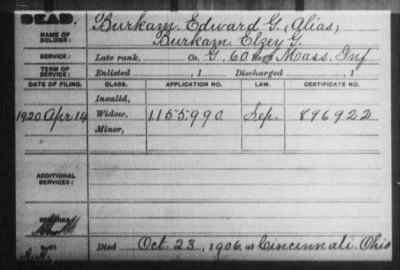 DEAD.
NAME OF SOLDIER:
Burkam Edward G., Alias,
Burkam Elzey G.
SERVICE:
Late rank, Co. G, 60 Reg't Mass. Inf
TERM OF SERVICE:
Enlisted , 1 Discharged , 1
DATE OF FILING. CLASS. APPLICATION NO. LAW. CERTIFICATE NO.
Invalid,
1920 Apr 14 Widow, 1155990 Sep. 896922
Minor,
ADDITIONAL SERVICES:
REMARKS:
Died Oct. 23, 1906, at Cincinnati. Ohio